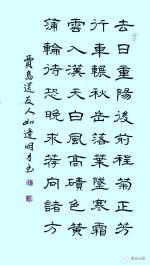 去日重陽後前程菊正芳
行車輾秋岳落葉墜寒霜
雲入漢天白風高磧色黃
蒲輪待恐晚求荐向諸方
賈島送友人如邊明月書